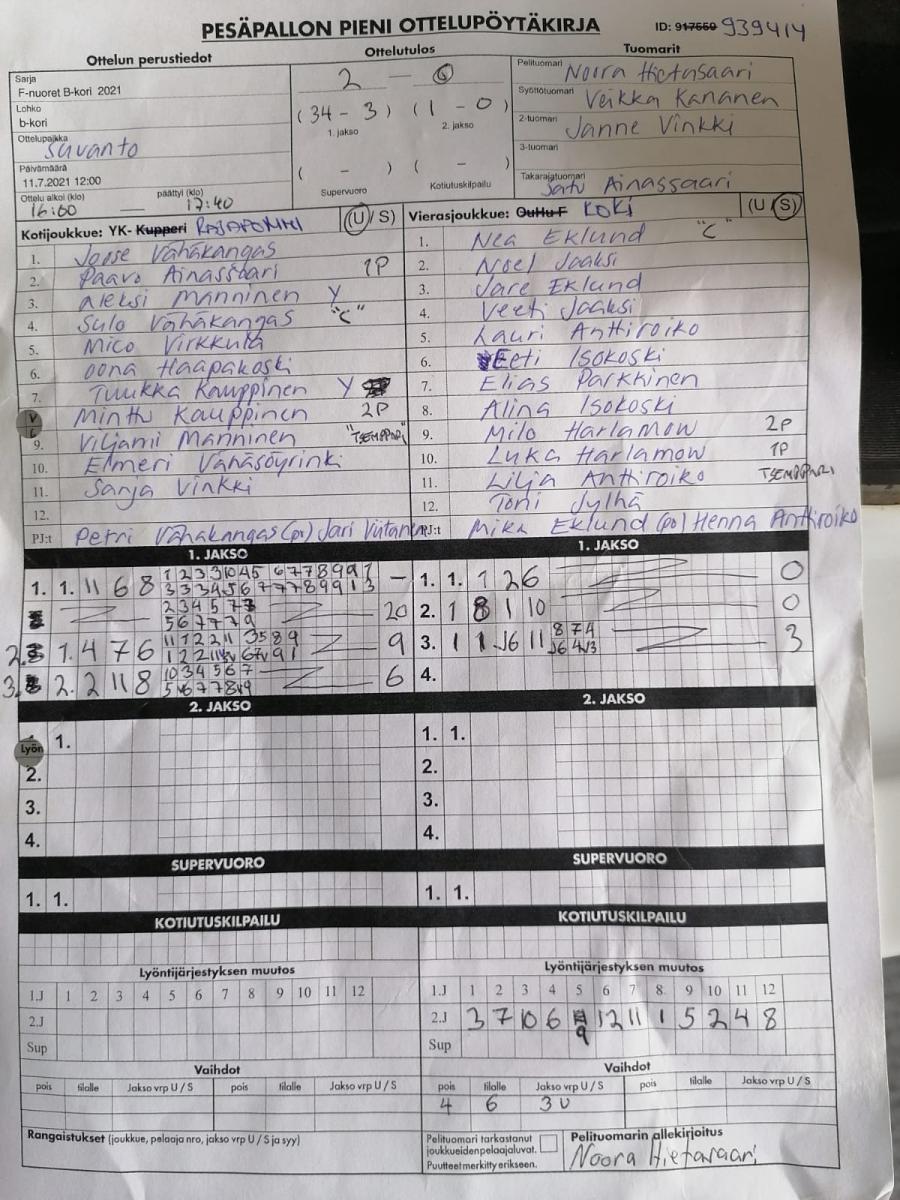 PESÄPALLON PIENI OTTELUPÖYTÄKIRJA
ID: 917550 939414
Ottelun perustiedot
Ottelutulos
Tuomarit
Sarja
F-nuoret B-kori 2021
Lohko
b-kori
Ottelupaikka
Suvanto
Päivämäärä
11.7.2021 12:00
Ottelu alkoi (klo)
päättyi (klo)
16:00 — 17:40
2 – 0
(34 – 3) (1 – 0)
1. jakso
2. jakso
( – ) ( – )
Supervuoro
Kotiutuskilpailu
Pelituomari Noora Hietasaari
Syöttötuomari Veikka Kananen
2-tuomari Janne Vinkki
3-tuomari
Takarajatuomari Satu Ainassaari
Kotijoukkue: YK- Kupperi RAJAPOMMI (U / S)
1. Joose Vähäkangas
2. Paavo Ainassaari 1P
3. Aleksi Manninen Y
4. Sulo Vähäkangas "C"
5. Mico Virkkula
6. Oona Haapakoski
7. Tuukka Kauppinen Y
8. Minttu Kauppinen 2P
9. Viljami Manninen "TSEMPPARI"
10. Elmeri Vähäsöyrinki
11. Sanja Vinkki
12.
PJ:t Petri Vähäkangas (po) Jari Viitanen
Vierasjoukkue: OuHu F KOKI (U / S)
1. Nea Eklund "C"
2. Noel Jaaksi
3. Jare Eklund
4. Veeti Jaaksi
5. Lauri Anttiroiko
6. Veeti Isokoski
7. Elias Parkkinen
8. Alina Isokoski
9. Milo Harlamow 2P
10. Luka Harlamow 1P
11. Lilja Anttiroiko TSEMPPARI
12. Toni Jylhä
PJ:t Mika Eklund (po) Henna Anttiroiko
1. JAKSO
1. 1. 11 6 8
2 3 4 5 7 7
5 6 7 7 7 9
20
2. 1. 4 7 6
9
3. 2. 2 11 8
10 3 4 5 6 7
6
1. JAKSO
1. 1. 1 2 6 0
2. 1 8 1 10 0
3. 1 1. 6 11 8 7 4
3
4.
2. JAKSO
1. 1.
Lyön
2.
3.
4.
2. JAKSO
1. 1.
2.
3.
4.
SUPERVUORO
1. 1.
SUPERVUORO
1. 1.
KOTIUTUSKILPAILU
KOTIUTUSKILPAILU
Lyöntijärjestyksen muutos
1.J 1 2 3 4 5 6 7 8 9 10 11 12
2.J
Sup
Lyöntijärjestyksen muutos
1.J 1 2 3 4 5 6 7 8 9 10 11 12
2.J 3 7 10 6 9 12 11 1 5 2 4 8
Sup
Vaihdot
pois tilalle Jakso vrp U / S pois tilalle Jakso vrp U / S
Vaihdot
pois tilalle Jakso vrp U / S pois tilalle Jakso vrp U / S
4 6 3U
Rangaistukset (joukkue, pelaaja nro, jakso vrp U / S ja syy)
Pelituomari tarkastanut
joukkueidenpelaajaluvat.
Puutteet merkitty erikseen.
Pelituomarin allekirjoitus
Noora Hietasaari